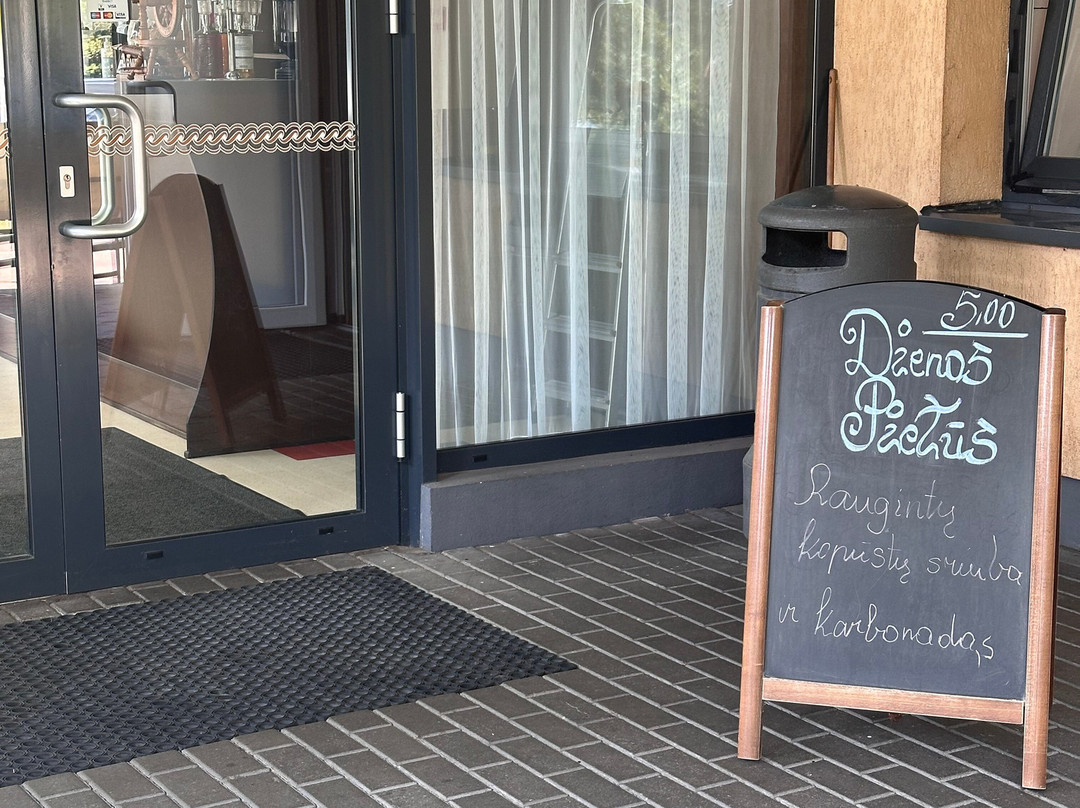 VISA
5,00
Dienos
Pietūs
Raugintų
kopūstų sriuba
ir karbonadas